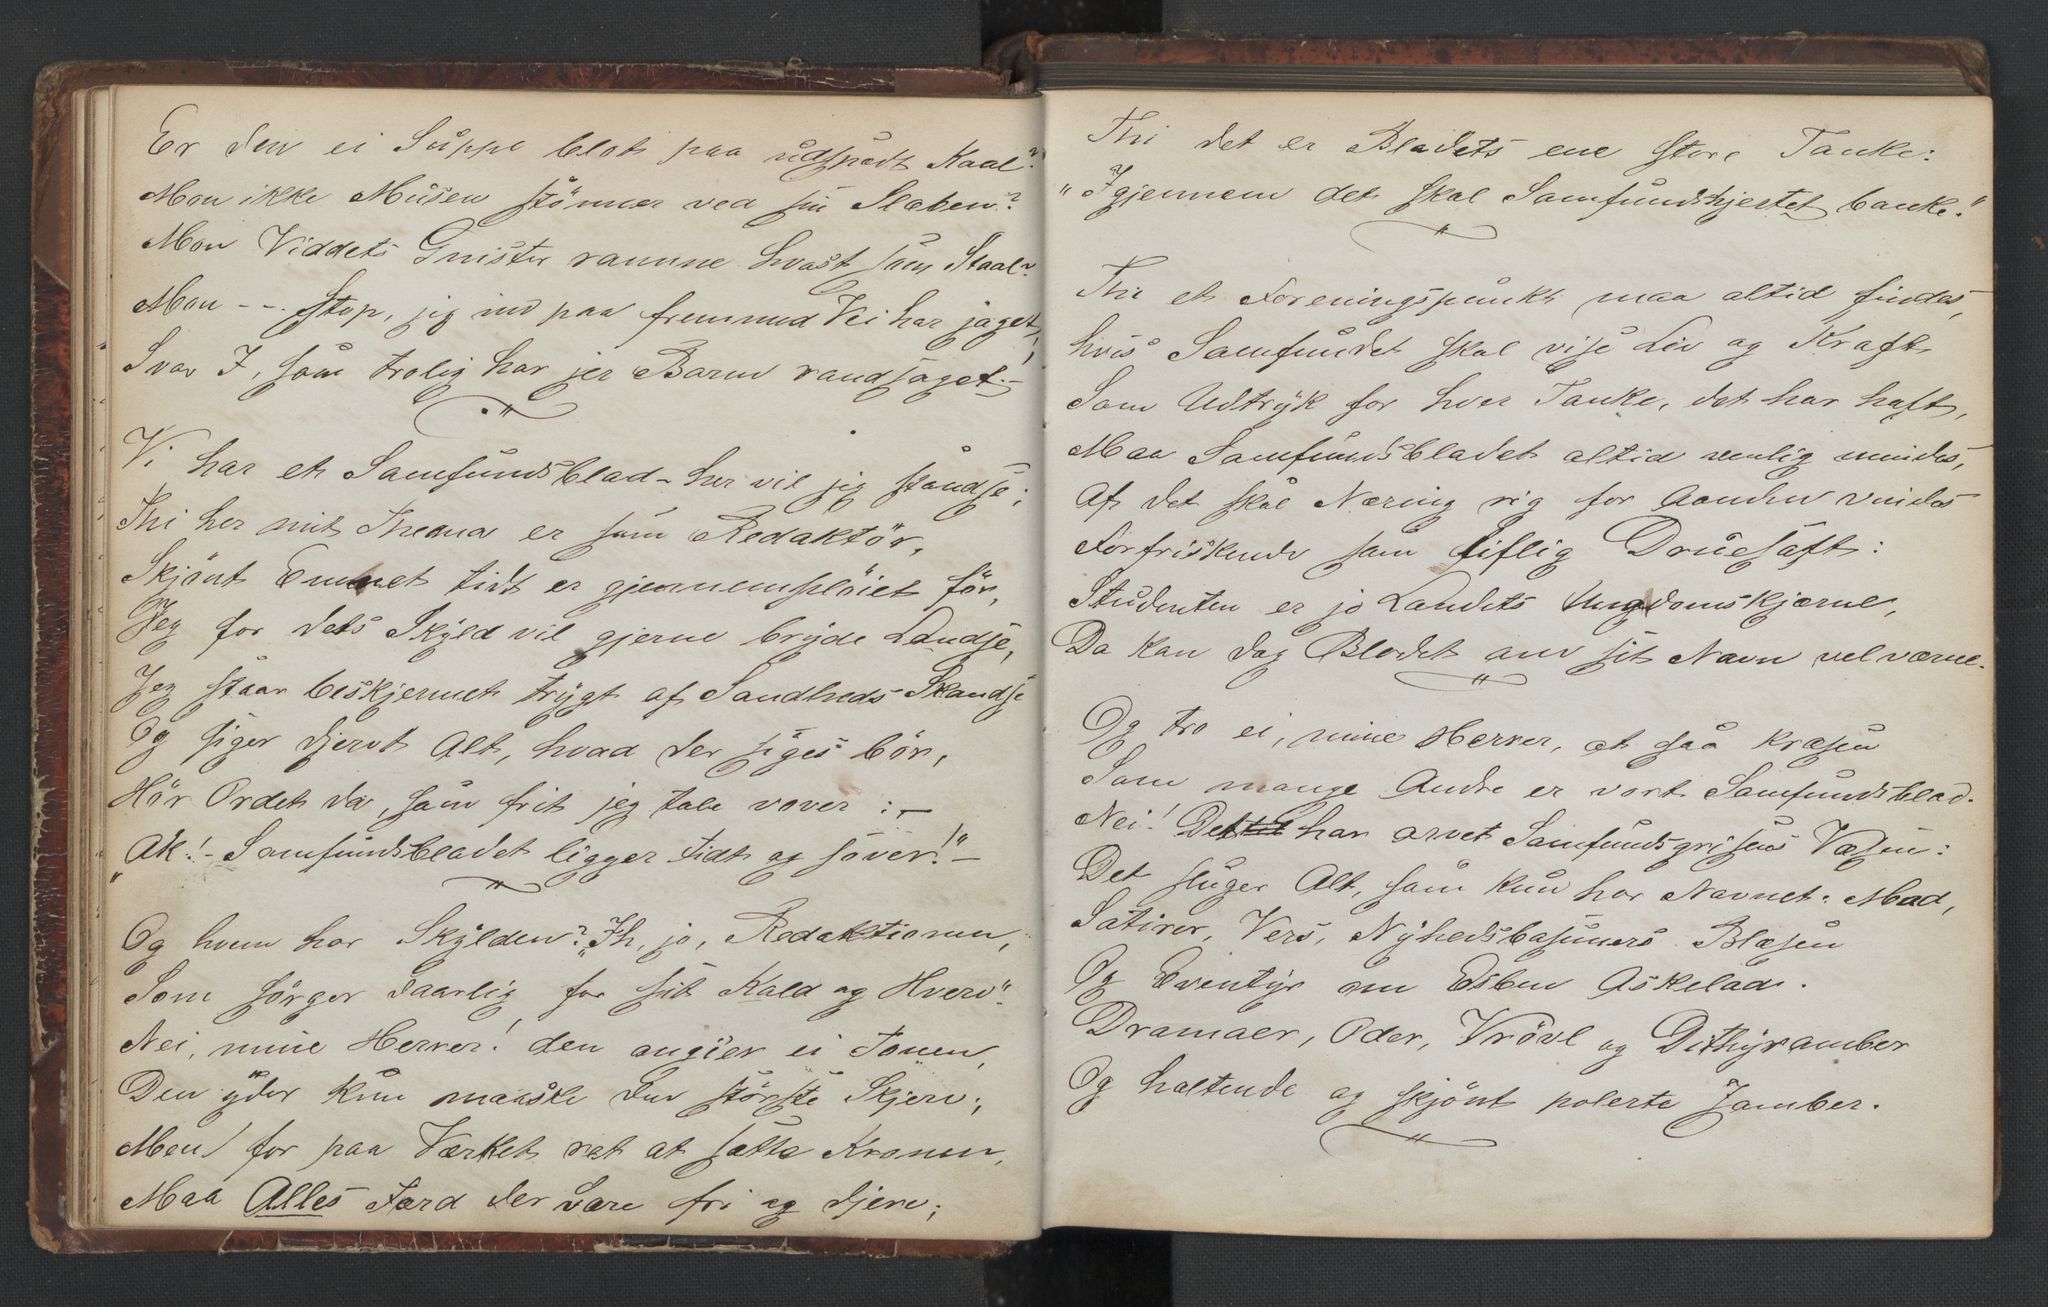 Er den ei Suppe blot paa udspædt Kaal?
Mon ikke Musen stönner ved sin Slæben?
Mon Viddets Gnister ramme hvast som Staal?
Mon -- Stop, jeg ind paa fremmed Vei har jaget,
Svar I, som trolig har jer Barm randsaget!-
Vi har et Samfundsblad - her vil jeg standse;
Thi her mit Thema er som Redaktör,
Skjönt Emnet tidt er gjennemplöiet för,
Jeg for dets Skyld vil gjerne bryde Landse,
Jeg staar beskjermet trygt af Sandheds Skandse
Og siger djervt Alt, hvad der siges bör,
Hör Ordet da, som frit jeg tale vover :-
"Ak!- Samfundsbladet ligger tidt og sover!"-
Og hvem har Skylden? "Ih, jo, Redaktionen,
Som sörger daarlig for sit Kald og Hverv".
Nei, mine Herrer! den angier ei Tonen,
Den yder kun maaske den störste Skjerv;
Men for paa Værket ret at sætte Kronen,
Maa Alles Færd der være fri og djerv;
Thi det er Bladets ene store Tanke:
"Igjennem det skal Samfundshjertet banke."
Thi et Foreningspunkt maa altid findes,
hvis Samfundet skal vise Liv og Kraft
Som Udtryk for hver Tanke, det har haft,
Maa Samfundsbladet altid venlig mindes,
Af det skal Næring rig for Aanden vindes
Forfriskende som liflig Druesaft:
Studenten er jo Landets Ungdomskjærne,
Da kan dog Bladet om sit Navn vel værne.
Og tro ei, mine Herrer, at saa kræsen
Som mange Andre er vort Samfundsblad.
Nei! Det har arvet Samfundsgrisens Væsen:
Det sluger Alt, som kun har Navnet: Mad,
Satirer, Vers, Nyhedsbasuners Blæsen
Og Eventyr om Esben Askelad.
Dramaer, Oder, Vrövl og Dithyramber
Og haltende og skjönt polerte Jamber.